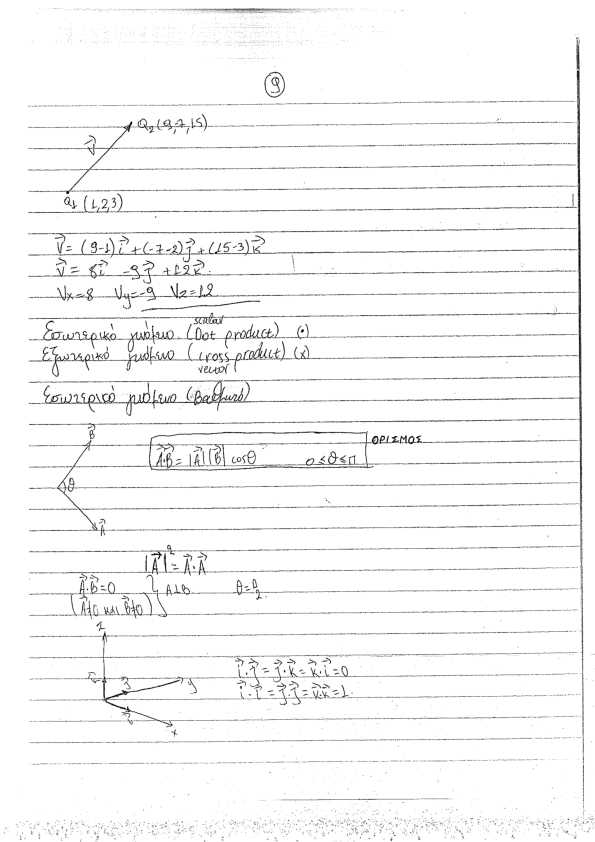 9
Q₂ (9,-7,15)
V⃗
Q₁ (1,2,3)
V⃗ = (9-1)i⃗ + (-7-2)j⃗ + (15-3)k⃗
V⃗ = 8i⃗ -9j⃗ +12k⃗.
Vx=8 Vy=-9 Vz=12
scalar
Εσωτερικό γινόμενο (Dot product) (•)
Εξωτερικό γινόμενο (cross product) (x)
vector
Εσωτερικό γινόμενο (Βαθμωτό)
B⃗
A⃗·B⃗ = |A⃗| |B⃗| cosθ 0≤θ≤π
ΟΡΙΣΜΟΣ
θ
A⃗
|A⃗|² = A⃗·A⃗
A⃗·B⃗=0
(A⃗≠0 και B⃗≠0) } A⊥B θ=π/2
z
i⃗·j⃗ = j⃗·k⃗ = k⃗·i⃗ = 0
j⃗ y
i⃗·i⃗ = j⃗·j⃗ = k⃗·k⃗ = 1
i⃗
x